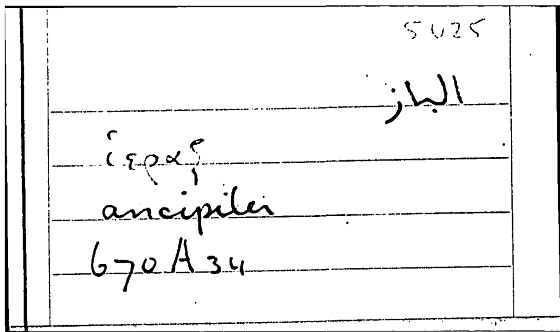 5025
الباز
ἱέραξ
ancipiter
670A34